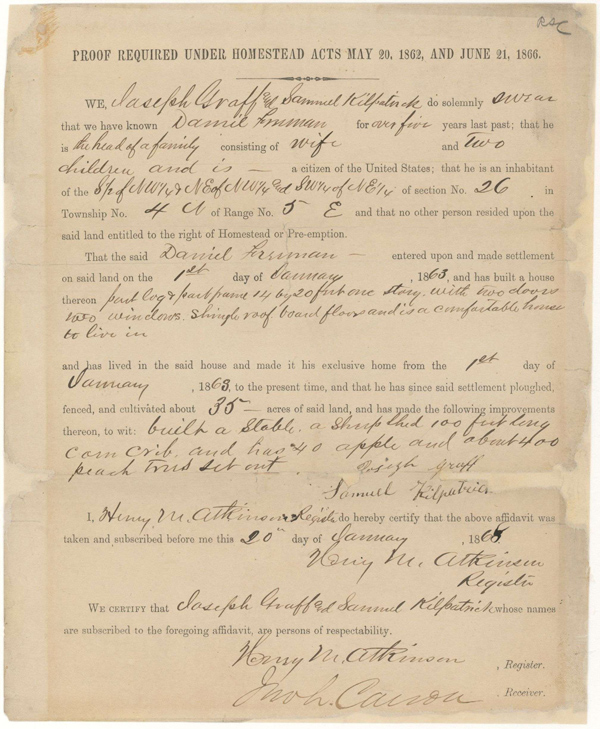 RSC
PROOF REQUIRED UNDER HOMESTEAD ACTS MAY 20, 1862, AND JUNE 21, 1866.
WE, Joseph Graff & Samuel Kilpatrick do solemnly swear
that we have known Daniel Freeman for over five years last past; that he
is the head of a family consisting of wife and two
children and is — a citizen of the United States; that he is an inhabitant
of the S½ of NW¼ & NE of NW¼ & SW¼ of NE¼ of section No. 26 in
Township No. 4 N of Range No. 5 E and that no other person resided upon the
said land entitled to the right of Homestead or Pre-emption.
That the said Daniel Freeman — entered upon and made settlement
on said land on the 1st day of January, 1863, and has built a house
thereon part log & part frame 14 by 20 feet one story. with two doors
two windows. shingle roof board floors and is a comfortable house
to live in
and has lived in the said house and made it his exclusive home from the 1st day of
January, 1863, to the present time, and that he has since said settlement ploughed,
fenced, and cultivated about 35 — acres of said land, and has made the following improvements
thereon, to wit: built a stable. a sheep shed 100 feet long
corn crib. and has 40 apple and about 400
peach trees set out.
Joseph Graff
Samuel Kilpatrick
I, Henry M. Atkinson Register do hereby certify that the above affidavit was
taken and subscribed before me this 20th day of January, 1868.
Henry M. Atkinson
Register
WE CERTIFY that Joseph Graff & Samuel Kilpatrick whose names
are subscribed to the foregoing affidavit, are persons of respectability.
Henry M. Atkinson, Register.
Receiver.